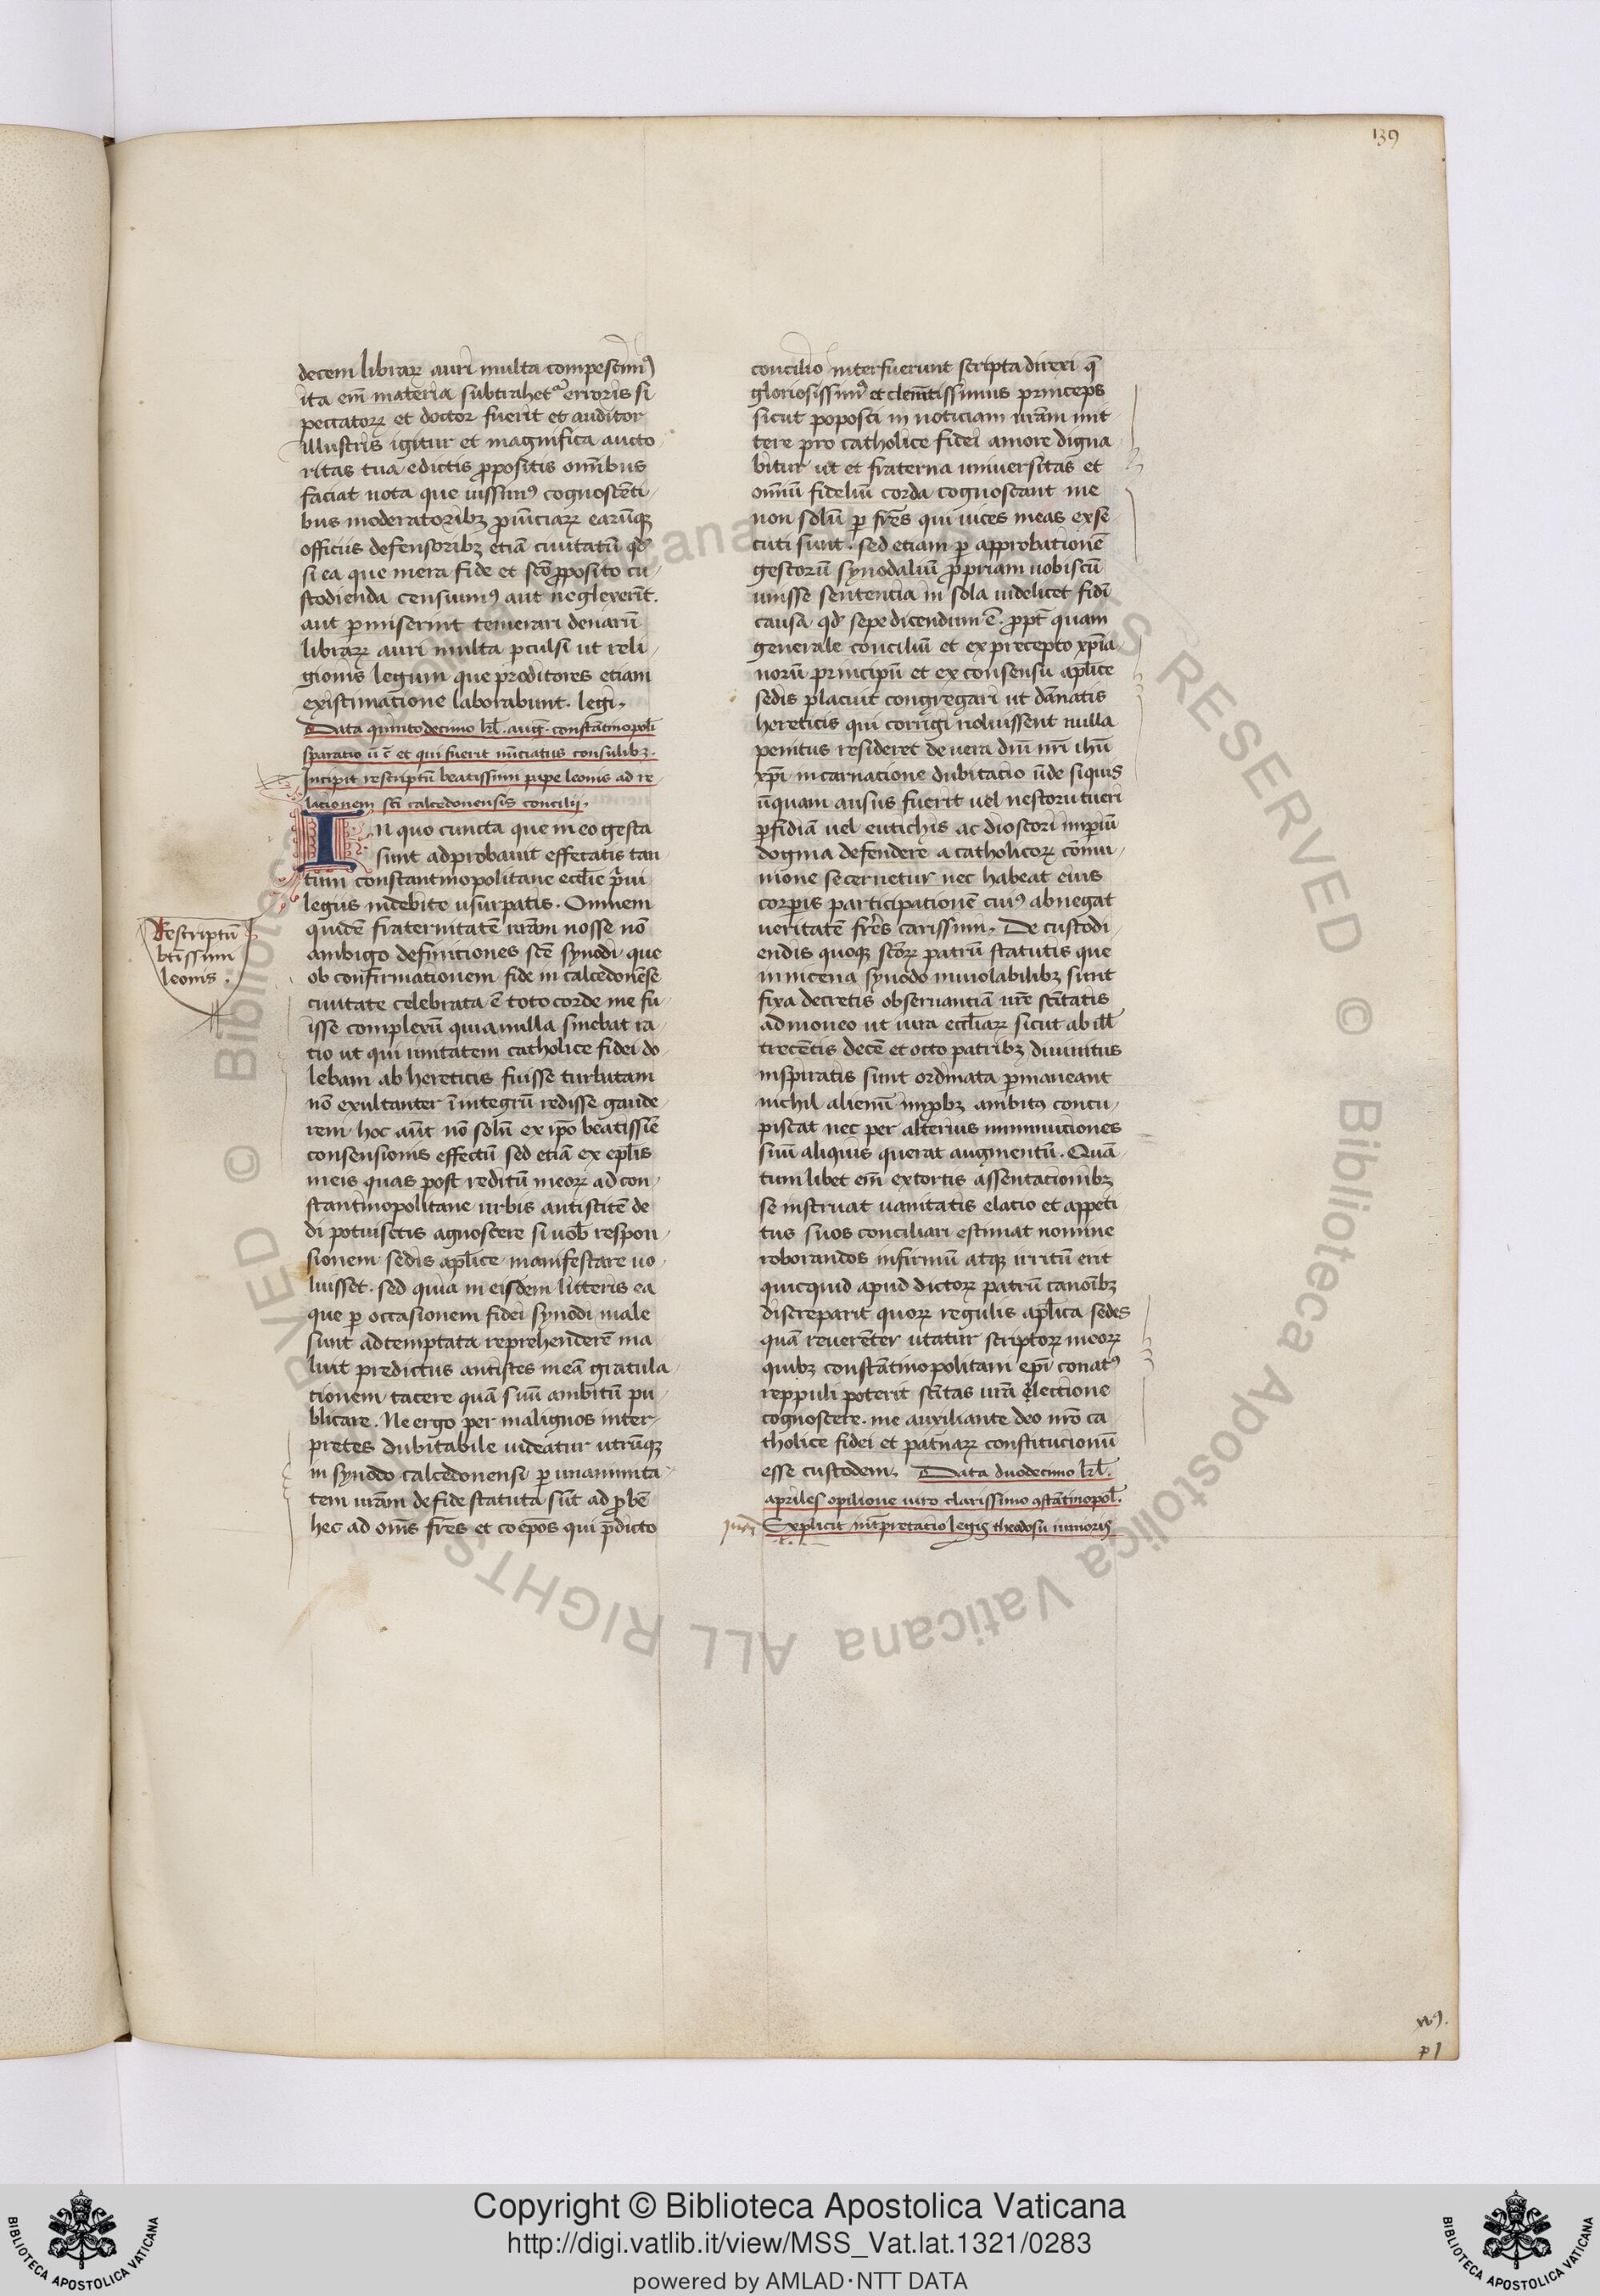 139
decem librarꝝ auri multa compescimꝰ
ita em̄ materia subtrahetᷣ erroris si
peccatorꝝ et doctor fuerit et auditor
illustris igitur et magnifica aucto
ritas tua edictis ꝓpositis om̄ibus
faciat nota que iussimꝰ cognoscēti
bus moderatoribꝫ ꝓuīciarꝝ earūqꝫ
officiis defensoribꝫ etiā ciuitatū qd̕
si ea que mera fide et sc̄o ꝓposito cu
stodienda censuimꝰ aut neglexerit.
aut ꝑmiserint temerari denarū
librarꝝ auri multa ꝑculsi ut reli
gionis legum que proditores etiam
existimatione laborabunt. legi.
Data quintodecimo kl̄. auḡ. constātinopoli
sparatio ū c̄ et qui fuerit nūciatus consulibꝫ.
Incipit rescriptū beatissimi pape leonis ad re
lationem sc̄i calcedonensis concilii.
IN quo cuncta que in eo gesta
sunt adprobauit effetatis tan
tum constantinopolitane eccl̄ie pͥui
legiis indebite usurpatis. Omnem
quidē fraternitatē ur̄am nosse nō
ambigo definitiones sc̄e synodi que
ob confirmationem fide in calcedonēse
ciuitate celebrata ē toto corde me fu
isse complexū quia nulla sinebat ra
tio ut qui unitatem catholice fidei do
lebam ab hereticis fuisse turbatam
nō exultanter ī integrū redisse gaude
rem hoc aūt nō solū ex ip̄o beatissīe
consensionis effectū sed etiā ex epl̄is
meis quas post reditū meorꝝ ad con
stantinopolitane urbis antistitē de
di potuisetis agnoscere si uob̄ respon
sionem sedis apl̄ice manifestare uo
luisset. sed quia in eisdem litteris ea
que ꝑ occasionem fidei synodi male
sunt adtemptata reprehenderē ma
luit predictus antistes meā gratula
tionem tacere quā suū ambitū pu
blicare. Ne ergo per malignos inter
pretes dubitabile uideatur utrūqꝫ
in synodo calcedonensi ꝑ unanimita
tem ur̄am de fide statuta sūt ad ꝓbē
hec ad om̄s fr̄es et coep̄os qui p̄dicto
Rescriptū
btissimi
leonis.
concilio interfuerunt scripta direxi q̄
gloriosissimꝰ et clem̄tissimus princeps
sicut poposci in noticiam ur̄am mit
tere pro catholice fidei amore digna
bitur ut et fraterna uniuersitas et
om̄iū fideliū corda cognoscant me
non solū ꝑ fr̄es qui uices meas exse
cuti sunt. sed etiam ꝑ approbationē
gestorū synodaliū ꝓpriam uobiscū
unisse sententia in sola uidelicet fidī
causa qd̕ sepe dicendum ē. ꝓpt̄ quam
generale conciliū et ex precepto xp̄ia
norū principū et ex consensu apl̄ice
sedis placuit congregari ut dānatis
hereticis qui corrigi noluissent nulla
penitus resideret de uera dn̄i nr̄i ihū
xp̄i incarnatione dubitatio ūde siquis
ūquam ausus fuerit uel nestorii tueri
ꝑfidiā uel eutichis ac dioscori impiū
dogma defendere a catholicorꝝ cōmu
nione secernetur nec habeat eius
corꝑis participationē cuiꝰ abnegat
ueritatē fr̄es carissimi. De custodi
endis quoqꝫ sc̄orꝝ patrū statutis que
in nicena synodo inuiolabilibꝫ sunt
fixa decretis obseruantiā ur̄e sc̄itatis
admoneo ut iura eccl̄iarꝝ sicut ab ill̄
trecētis decē et octo patribꝫ diuinitus
inspiratis sunt ordinata ꝑmaneant
nichil alienū imꝓbꝫ ambitꝰ concu
piscat nec per alterius imminutiones
suū aliquis querat augmentū. Quā
tum libet em̄ extortis assentacionibꝫ
se instruat uanitatis elatio et appeti
tus suos conciliari estimat nomine
roborandos infirmū atqꝫ irritū erit
quicquid apud dictorꝝ patrū canoībꝫ
discreparit quorꝝ regulis apl̄ica sedes
quā reuerēter utatur scriptorꝝ meorꝝ
quibꝫ constātinopolitani ep̄i conatꝰ
reppuli poterit sc̄itas ur̄a electione
cognoscere. me auxiliante deo nr̄o ca
tholice fidei et patnarꝝ constitucionū
esse custodem. Data duodecimo kl̄.
apriles opilione uiro clarissimo ꝯstātinopol̄.
Explicit int̄pretatio legis theodosii iunioris